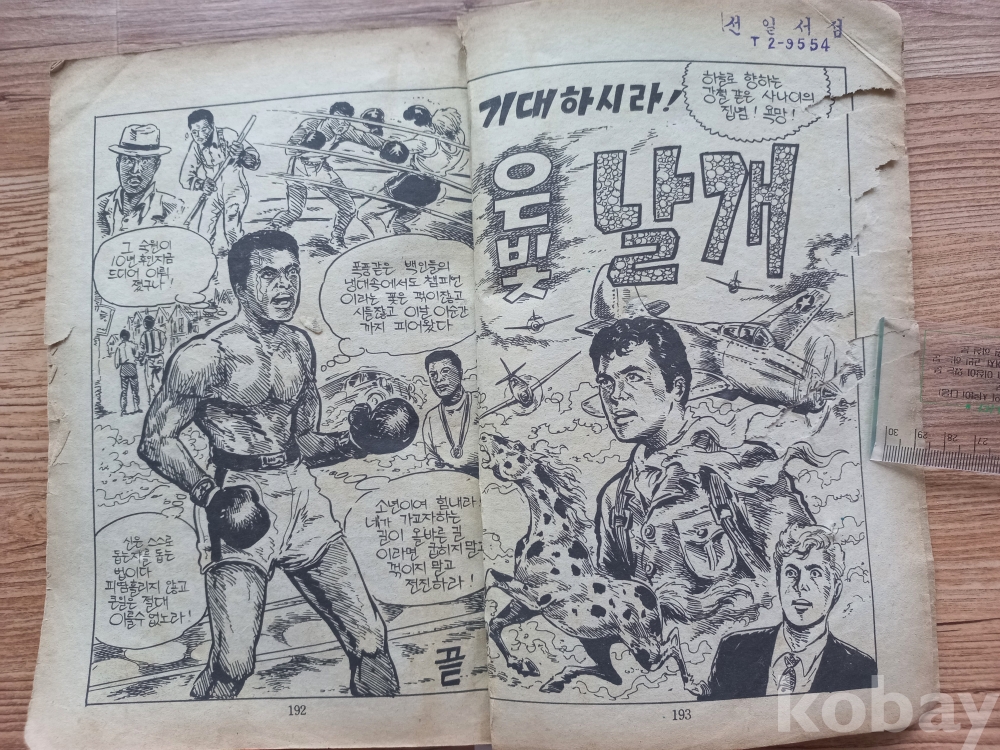 선 일 서 점
T 2-9554
그 숙원이
10년 후인 지금
드디어 이뤄
졌구나!
폭풍같은 백인들의
냉대속에서도 챔피언
이라는 꽃은 꺾이잖고
시들잖고 이날 이순간
까지 피어왔다
소년이여 힘내라
네가 가고자하는
길이 올바른 길
이라면 굽히지 말고
꺾이지 말고
전진하라!
신은 스스로
돕는자를 돕는
법이다
피땀흘리지 않고
큰일은 절대
이룰수 없노라!
끝
192
기대하시라!
하늘로 향하는
강철 같은 사나이의
집념! 욕망!
은빛 날개
193
30 29 28 27
kobay